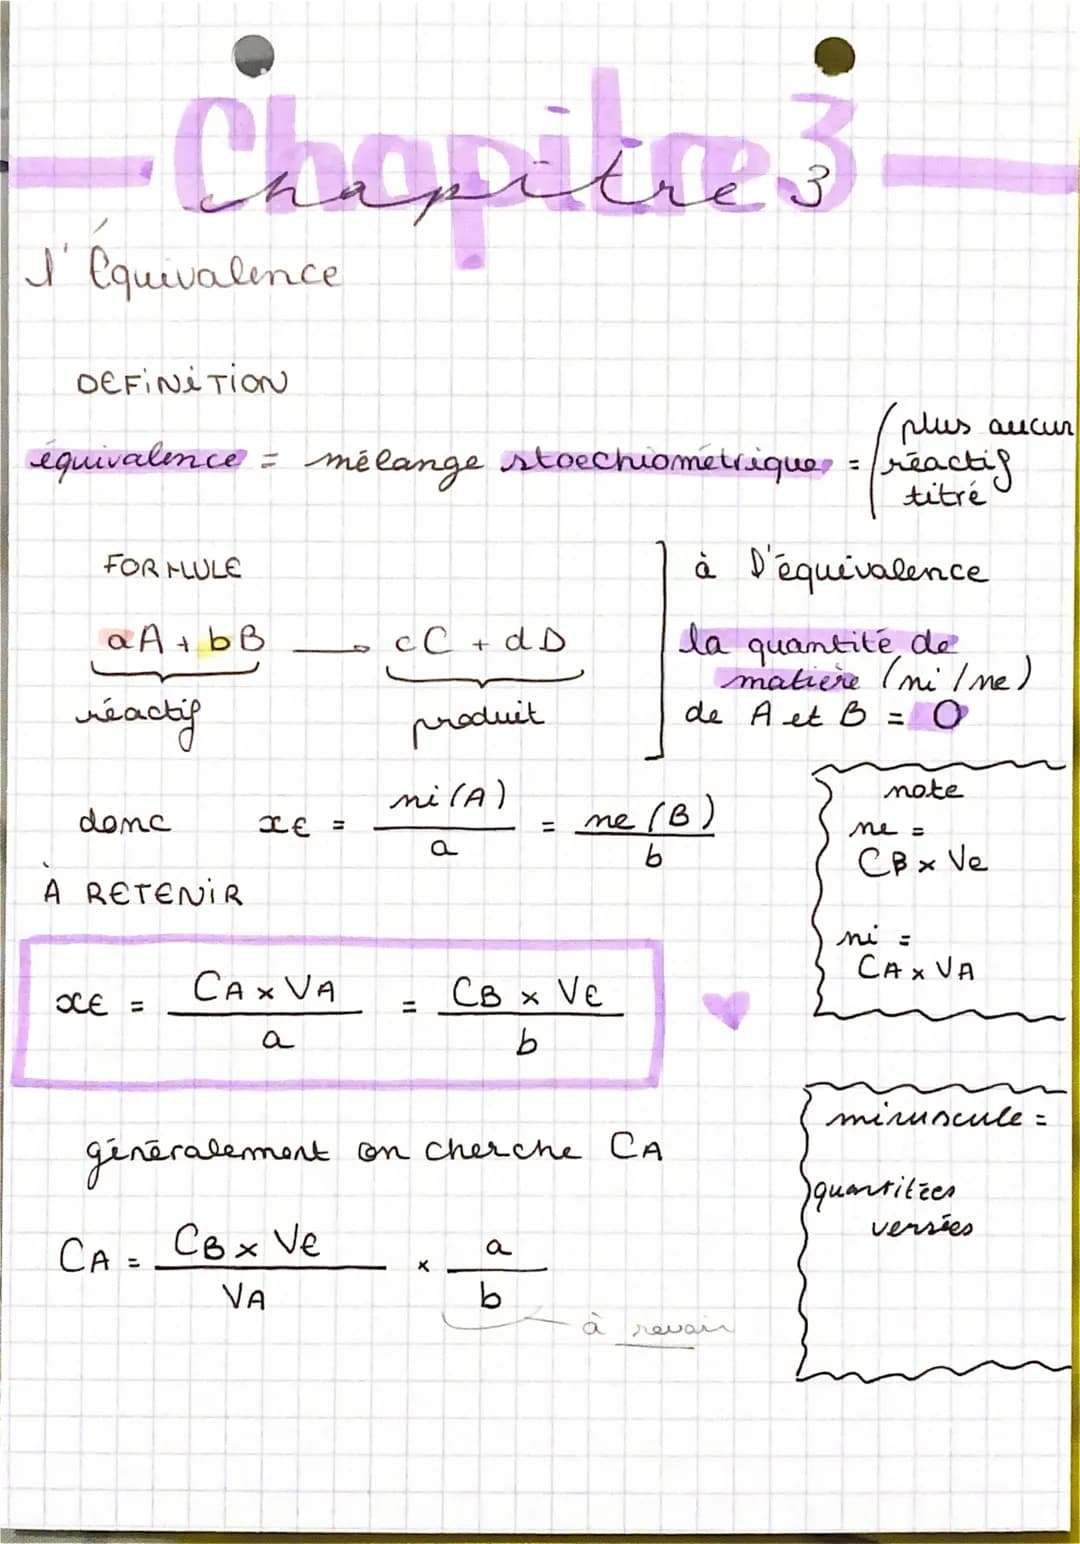 Chapitre 3
Chapitre 3
l'Équivalence
DEFiNiTiON
équivalence = mélange stoechiométrique = plus aucun
réactif
titré
FORMULE
aA + bB → cC + dD
réactif
produit
à l'équivalence
la quantité de
matière (ni / ne)
de A et B = 0
donc xE = ni(A)/a = ne(B)/b
note
ne =
CB x Ve
ni =
CA x VA
À RETENiR
xE = CA x VA / a = CB x VE / b
généralement on cherche CA
minuscule =
quantitées
versées
CA = CB x VE / VA x a / b
à revoir